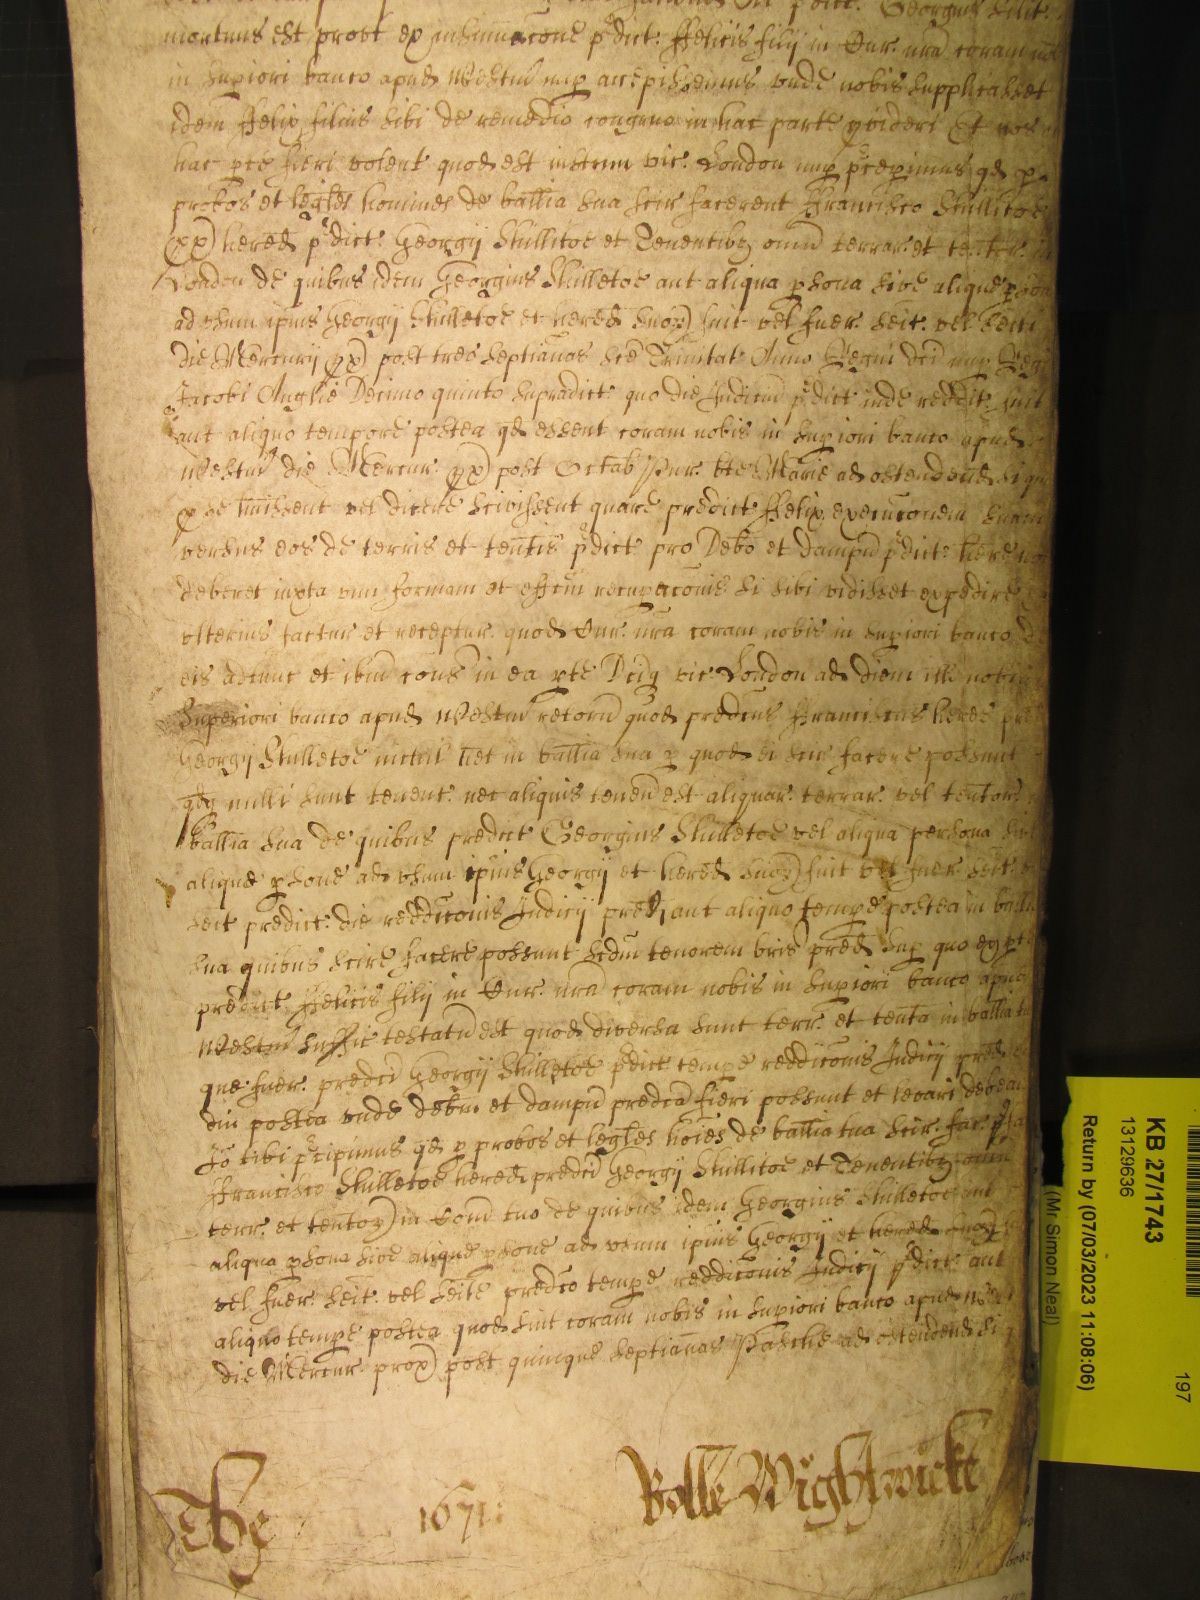 mortuus est prout ex insinuacone p'dict. ffelicis filij in Cur. nra coram
in supiori banco apud Westm nup accepissemus unde nobis supplicasset
idem ffelix filius sibi de remedio congruo in hac parte provideri Et nos
hac pte fieri volent quod est iustum vic. London nup p'cepimus qd p
probos et legles homines de ballia sua scir facerent ffrancisco Skillitoe
(xx) hered p'dict. Georgij Skillitoe et Tenentibz omn terrar. et
London de quibus idem Georgius Skilletoe aut aliqua psona sive alique
ad usum ipius Georgij Skilletoe et hered suoz fuit vel fuer. seit. vel
die Mercurij px post tres septianas sce Trinitat Anno Regni dci nup Reg
Jacobi Anglie Decimo quinto supradict. quo die Judiciu p'dict inde reddit. fuit
aut aliquo tempore postea qd essent coram nobis in supiori banco apud
Westm die Mercur. px post Octab Pur. bte Marie ad ostendend si
p se huissent vel dicere scivissent quare predict ffelix execuconem suam
versus eos de terris et tentis p'dict pro Debo et dampn p'dict. here
deberet iuxta vim formam et effcum recupaconis si sibi vidisset expedire
ulterius factur et receptur. quod Cur. nra coram nobis in supiori banco
eis adtunc et ibm cons in ea pte Dciq vic London ad diem ill nobis
Superiori banco apud Westm retorn quod predcus ffranciscus heres
Georgij Skilletoe nichil het in ballia sua p quod ei scir facere possunt
qdq nulli sunt tenent. nec aliquis tenen est aliquar. terrar. vel tentor.
Ballia sua de quibus predict Georgius Skilletoe vel aliqua persona
alique psone ad usum ipius Georgij et hered suoz fuit vel fuer. seit.
seit predict. die reddiconis Judicij pred aut aliquo tempe postea in
sua quibus scire facere possunt scdm tenorem bris pred Sup quo ex pte
predict ffelicis filij in Cur. nra coram nobis in supiori banco apud
Westm suffic testatu est quod diversa sunt terr. et tenta in ballia
que fuer. predci Georgij Skilletoe p'dict tempe reddiconis Judicij pred
diu postea unde debm et dampn predca fieri possunt et levari
Jo tibi p'cipimus qd p probos et legles hoies de ballia tua scir. fac.
ffrancisco Skilletoe hered predci Georgij Skillitoe et Tenentibz
terr. et tentoz in Com tuo de quibus idem Georgius Skilletoe aut
aliqua psona sive alique psone ad usum ipius Georgij et hered suoz
vel fuer. seit. vel seite predco tempe reddiconis Judicij p'dict aut
aliquo tempe postea quod sint coram nobis in supiori banco apud
die Mercur. prox post quinque septianas Pasche ad ostendend si
1671.
Rolle Wightwicke
KB 27/1743
13129636
Return by (07/03/2023 11:08:06)
(Mr Simon Neal)
197